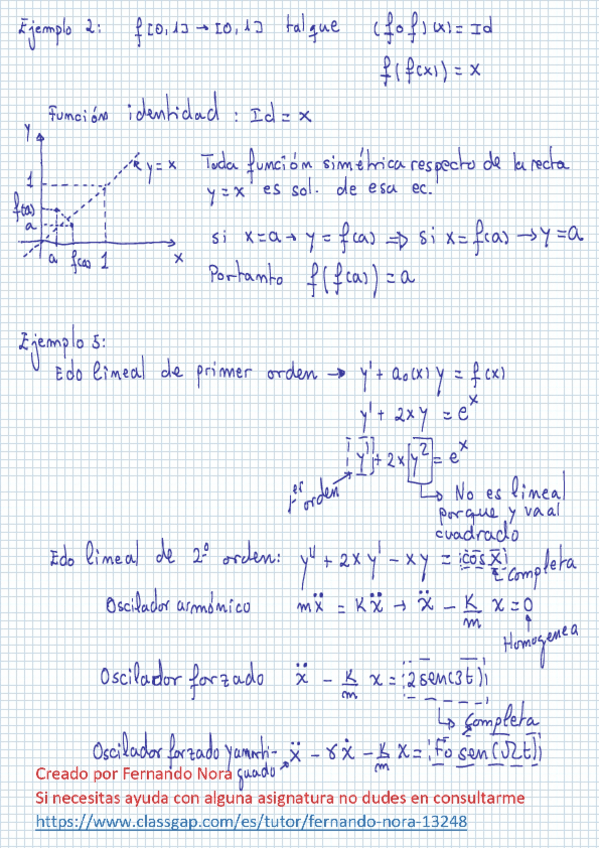 Ejemplo 2: f[0,1]→[0,1] tal que (f o f)(x) = Id
f(f(x)) = x
Función identidad : Id = x
y
y = x
1
f(a)
a
a f(a) 1 x
Toda función simétrica respecto de la recta
y = x es sol. de esa ec.
si x=a → y = f(a) ⇒ si x = f(a) → y = a
Portanto f(f(a)) = a
Ejemplo 5:
Edo lineal de primer orden → y' + a₀(x) y = f(x)
y' + 2xy = eˣ
y' + 2x y² = eˣ
1er orden
No es lineal
porque y va al
cuadrado
Edo lineal de 2º orden: y'' + 2x y' - xy = cos x
completa
Oscilador armónico mẍ = Kẍ → ẍ - K/m x = 0
Homogenea
Oscilador forzado ẍ - K/m x = 2 sen(3t)
Completa
Oscilador forzado y amorti- ẍ - γẋ - K/m x = F₀ sen(Ωt)
guado
Creado por Fernando Nora
Si necesitas ayuda con alguna asignatura no dudes en consultarme
https://www.classgap.com/es/tutor/fernando-nora-13248